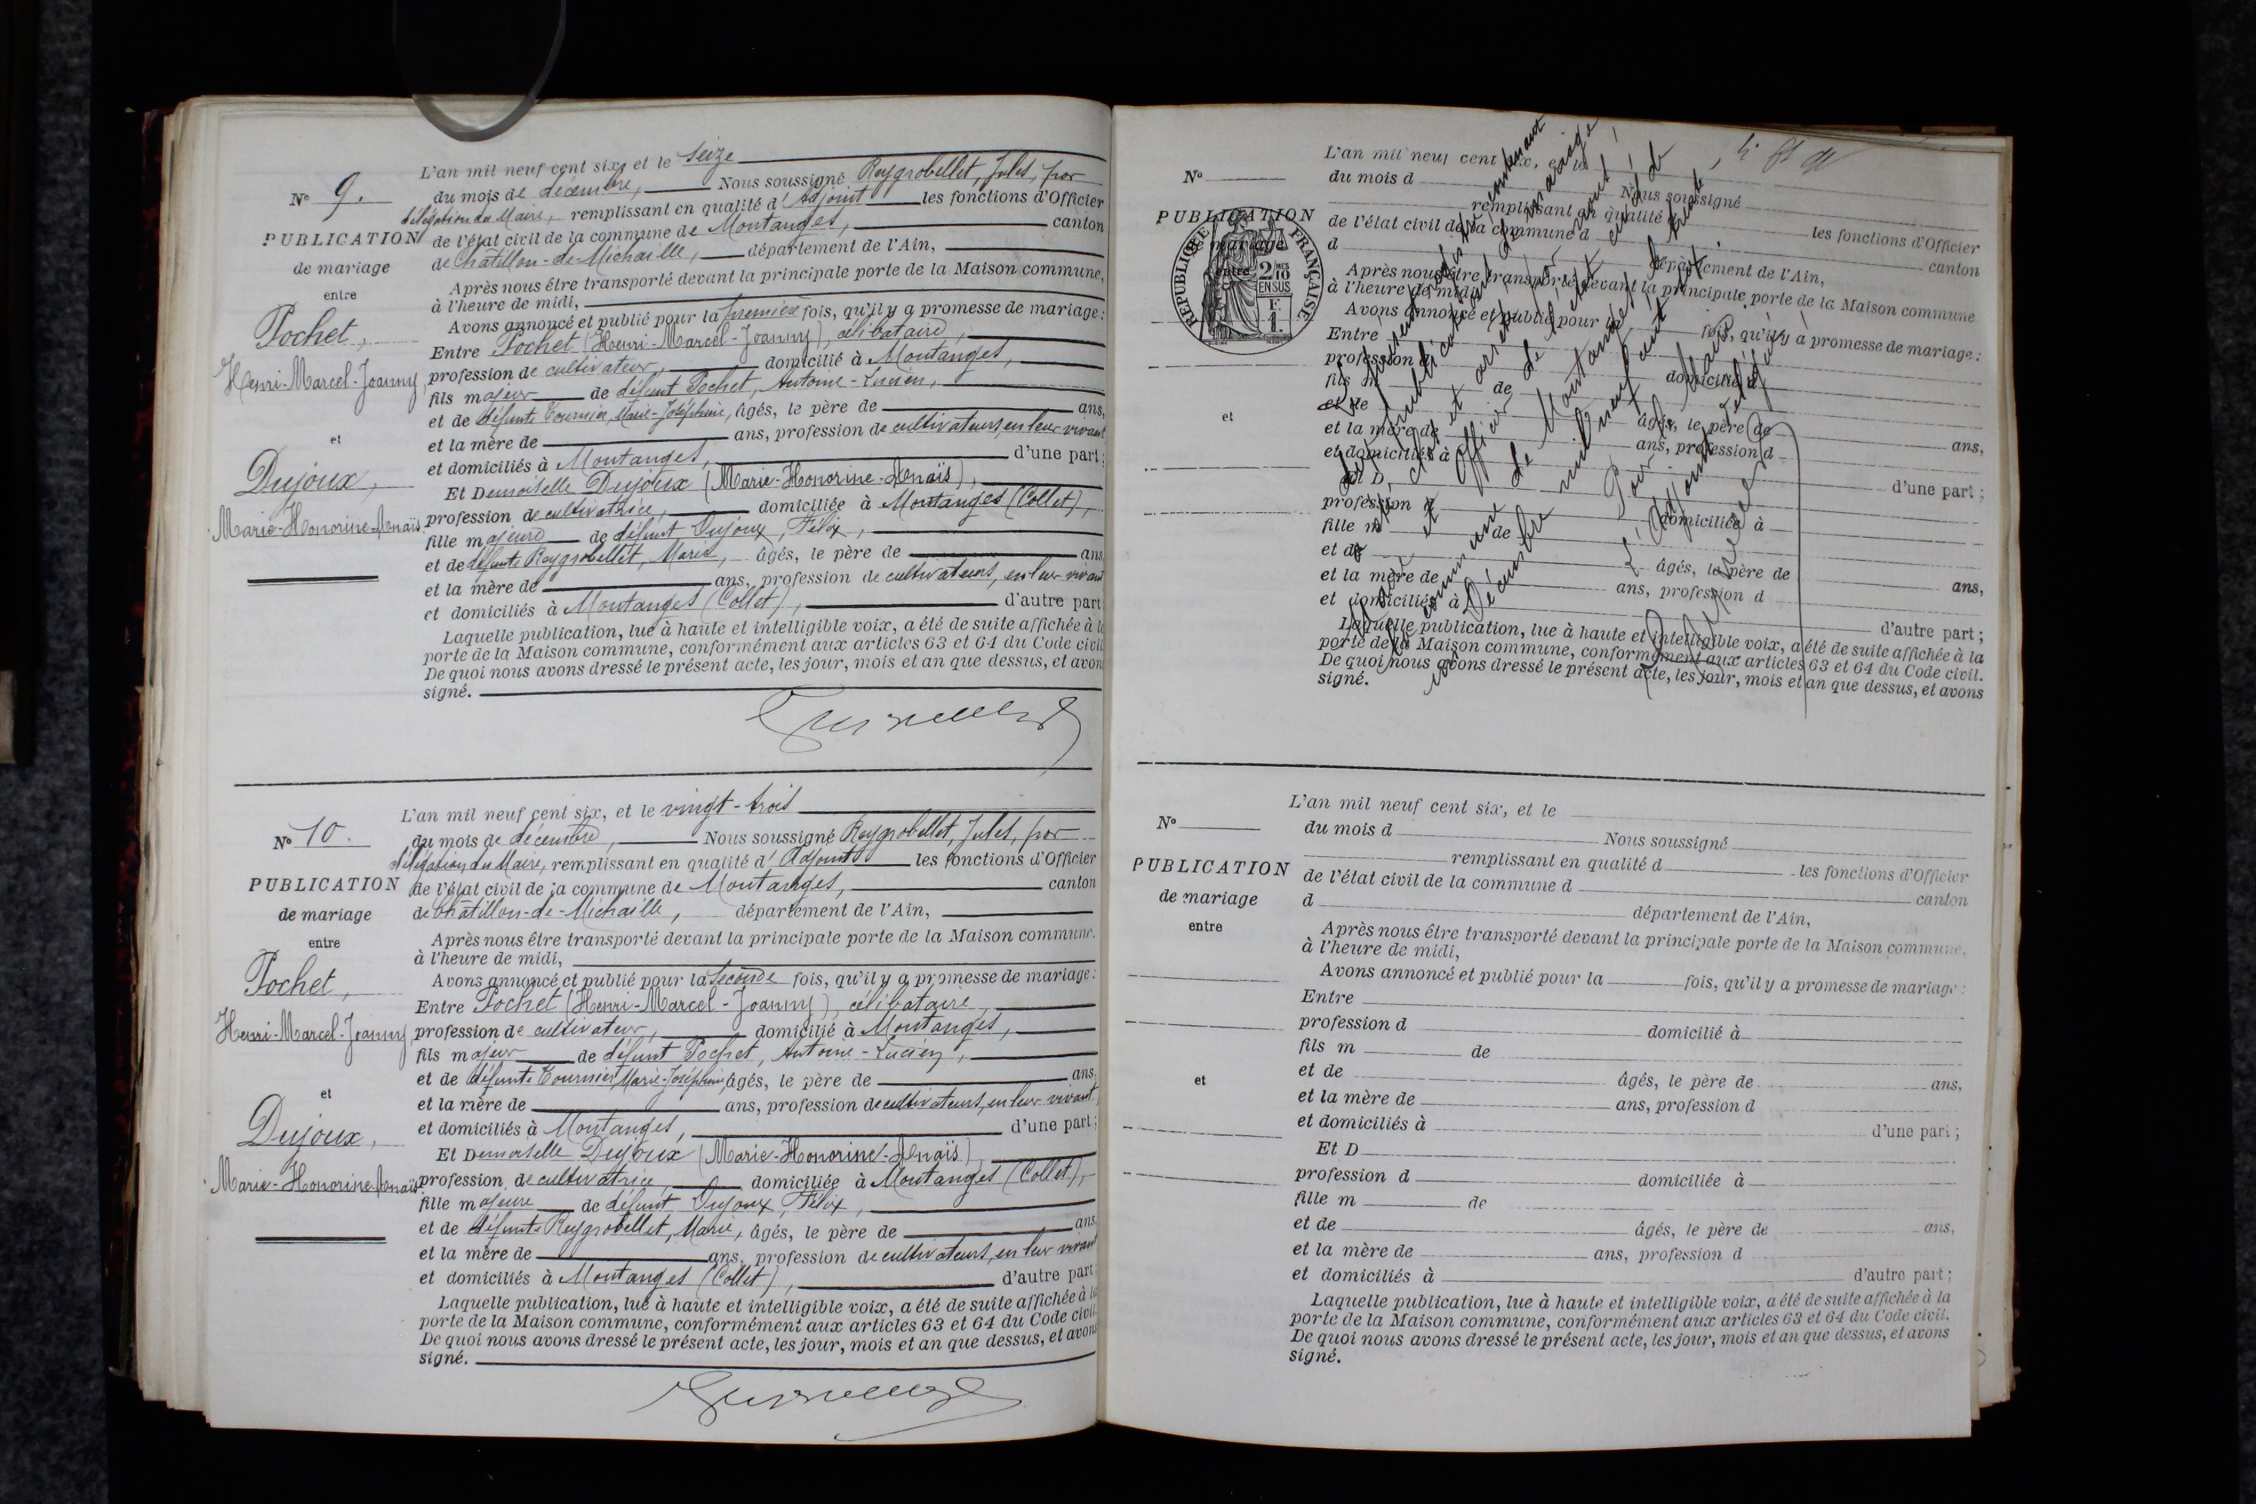 L'an mil neuf cent six, et le seize
Nº 9.
du mois de décembre, Nous soussigné Reygrobellet, Jules, par
délégation du Maire, remplissant en qualité d'Adjoint les fonctions d'Officier
PUBLICATION
de l'état civil de la commune de Montanges, canton
de Châtillon-de-Michaille, département de l'Ain,
de mariage
Après nous être transporté devant la principale porte de la Maison commune,
entre
à l'heure de midi,
Avons annoncé et publié pour la première fois, qu'il y a promesse de mariage:
Pochet,
Entre Pochet (Henri-Marcel-Joanny), célibataire,
Henri-Marcel-Joanny
profession de cultivateur, domicilié à Montanges,
fils majeur de défunt Pochet, Antoine-Lucien,
et de défunte Tournier, Marie-Joséphine, âgés, le père de ans,
et
et la mère de ans, profession de cultivateurs, en leur vivant
et domiciliés à Montanges, d'une part;
Dujoux,
Et Demoiselle Dujoux (Marie-Honorine-Anaïs),
Marie-Honorine-Anaïs
profession de cultivatrice, domiciliée à Montanges (Collet),
fille majeure de défunt Dujoux, Félix,
et de défunte Reygrobellet, Marie, âgés, le père de ans
et la mère de ans, profession de cultivateurs, en leur vivant
et domiciliés à Montanges (Collet), d'autre part
Laquelle publication, lue à haute et intelligible voix, a été de suite affichée à la
porte de la Maison commune, conformément aux articles 63 et 64 du Code civil
De quoi nous avons dressé le présent acte, les jour, mois et an que dessus, et avons
signé.
L'an mil neuf cent six, et le vingt-trois
Nº 10.
du mois de décembre, Nous soussigné Reygrobellet, Jules, par
délégation du Maire, remplissant en qualité d'Adjoint les fonctions d'Officier
PUBLICATION
de l'état civil de la commune de Montanges, canton
de Châtillon-de-Michaille, département de l'Ain,
de mariage
Après nous être transporté devant la principale porte de la Maison commune.
entre
à l'heure de midi,
Avons annoncé et publié pour la seconde fois, qu'il y a promesse de mariage:
Pochet,
Entre Pochet (Henri-Marcel-Joanny), célibataire,
Henri-Marcel-Joanny,
profession de cultivateur, domicilié à Montanges,
fils majeur de défunt Pochet, Antoine-Lucien,
et de défunte Tournier, Marie-Joséphine, âgés, le père de ans,
et
et la mère de ans, profession de cultivateurs, en leur vivant
et domiciliés à Montanges, d'une part;
Dujoux,
Et Demoiselle Dujoux (Marie-Honorine-Anaïs),
Marie-Honorine-Anaïs
profession de cultivatrice, domiciliée à Montanges (Collet),
fille majeure de défunt Dujoux, Félix,
et de défunte Reygrobellet, Marie, âgés, le père de ans
et la mère de ans, profession de cultivateurs, en leur vivant
et domiciliés à Montanges (Collet), d'autre part
Laquelle publication, lue à haute et intelligible voix, a été de suite affichée à la
porte de la Maison commune, conformément aux articles 63 et 64 du Code civil
De quoi nous avons dressé le présent acte, les jour, mois et an que dessus, et avons
signé.
L'an mil neuf cent six, et le
Nº
du mois d Nous soussigné
remplissant en qualité d les fonctions d'Officier
PUBLICATION
de l'état civil de la commune d canton
d département de l'Ain,
de mariage
entre
RÉPUBLIQUE FRANÇAISE
2/10 EN SUS
Après nous être transporté devant la principale porte de la Maison commune
à l'heure de midi,
Avons annoncé et publié pour fois, qu'il y a promesse de mariage:
Entre
profession d domicilié à
fils m de
et de âgés, le père de ans,
et
et la mère de ans, profession d
et domiciliés à d'une part;
Et D
profession d domiciliée à
fille m de
et de âgés, le père de ans,
et la mère de ans, profession d
et domiciliés à d'autre part;
Laquelle publication, lue à haute et intelligible voix, a été de suite affichée à la
porte de la Maison commune, conformément aux articles 63 et 64 du Code civil.
De quoi nous avons dressé le présent acte, les jour, mois et an que dessus, et avons
signé.
Le présent registre contenant
les publications de mariage
clos et arrêté par nous
Officier de l'état civil de
la commune de Montanges, le trente
Décembre mil neuf cent six.
Pour le Maire,
L'Adjoint délégué,
L'an mil neuf cent six, et le
Nº
du mois d Nous soussigné
remplissant en qualité d les fonctions d'Officier
PUBLICATION
de l'état civil de la commune d canton
de mariage
d département de l'Ain,
entre
Après nous être transporté devant la principale porte de la Maison commune,
à l'heure de midi,
Avons annoncé et publié pour la fois, qu'il y a promesse de mariage:
Entre
profession d domicilié à
fils m de
et de âgés, le père de ans,
et
et la mère de ans, profession d
et domiciliés à d'une part;
Et D
profession d domiciliée à
fille m de
et de âgés, le père de ans,
et la mère de ans, profession d
et domiciliés à d'autre part;
Laquelle publication, lue à haute et intelligible voix, a été de suite affichée à la
porte de la Maison commune, conformément aux articles 63 et 64 du Code civil.
De quoi nous avons dressé le présent acte, les jour, mois et an que dessus, et avons
signé.